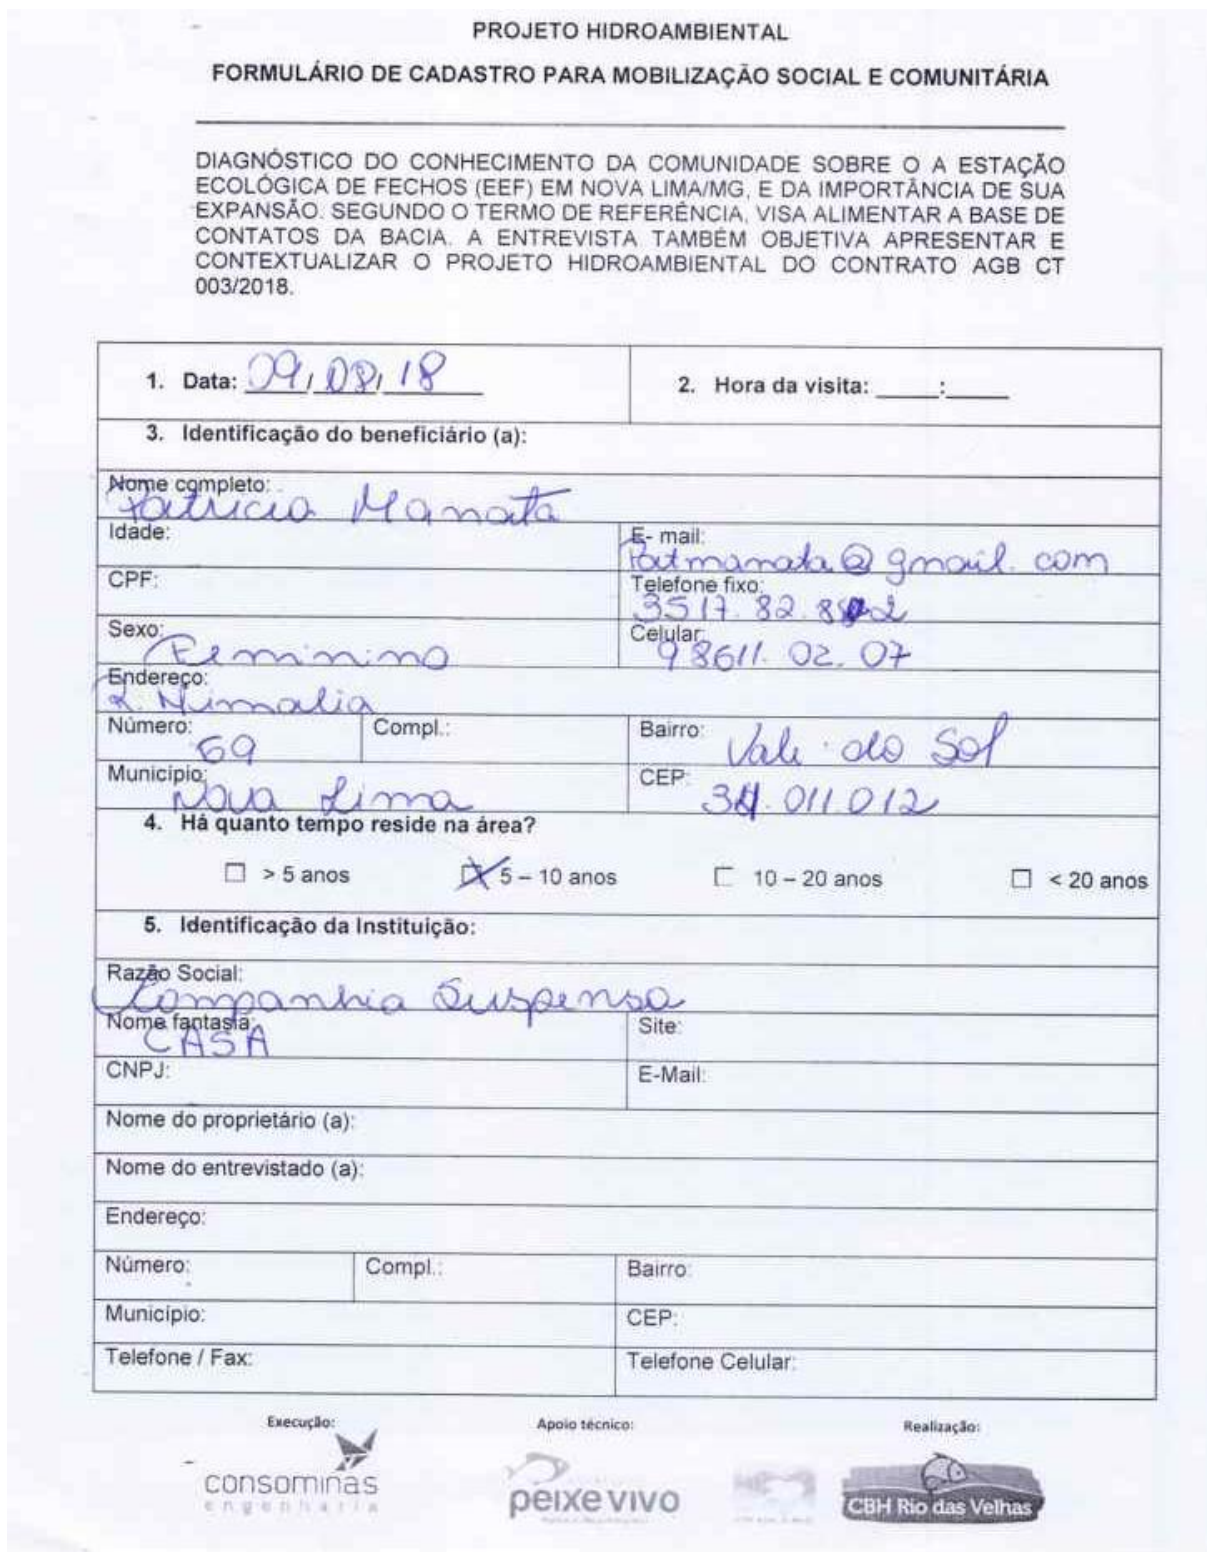 PROJETO HIDROAMBIENTAL
FORMULÁRIO DE CADASTRO PARA MOBILIZAÇÃO SOCIAL E COMUNITÁRIA
DIAGNÓSTICO DO CONHECIMENTO DA COMUNIDADE SOBRE O A ESTAÇÃO
ECOLÓGICA DE FECHOS (EEF) EM NOVA LIMA/MG, E DA IMPORTÂNCIA DE SUA
EXPANSÃO. SEGUNDO O TERMO DE REFERÊNCIA, VISA ALIMENTAR A BASE DE
CONTATOS DA BACIA. A ENTREVISTA TAMBÉM OBJETIVA APRESENTAR E
CONTEXTUALIZAR O PROJETO HIDROAMBIENTAL DO CONTRATO AGB CT
003/2018.
1. Data: 09/08/18
2. Hora da visita: _____:_____
3. Identificação do beneficiário (a):
Nome completo:
Patricia Manata
Idade:
E- mail:
patmanata@gmail.com
CPF:
Telefone fixo:
3517.82.
Sexo:
Feminino
Celular:
98611.02.07
Endereço:
R.
Número: 69
Compl.:
Bairro: Vale do Sol
Município:
Nova Lima
CEP: 34.011.012
4. Há quanto tempo reside na área?
☐ > 5 anos ☒ 5 – 10 anos ☐ 10 – 20 anos ☐ < 20 anos
5. Identificação da Instituição:
Razão Social:
Companhia Suspensa
Nome fantasia:
CASA
Site:
CNPJ:
E-Mail:
Nome do proprietário (a):
Nome do entrevistado (a):
Endereço:
Número:
Compl.:
Bairro:
Município:
CEP:
Telefone / Fax:
Telefone Celular:
Execução: Apoio técnico: Realização:
consominas
engenharia
peixe vivo
CBH Rio das Velhas